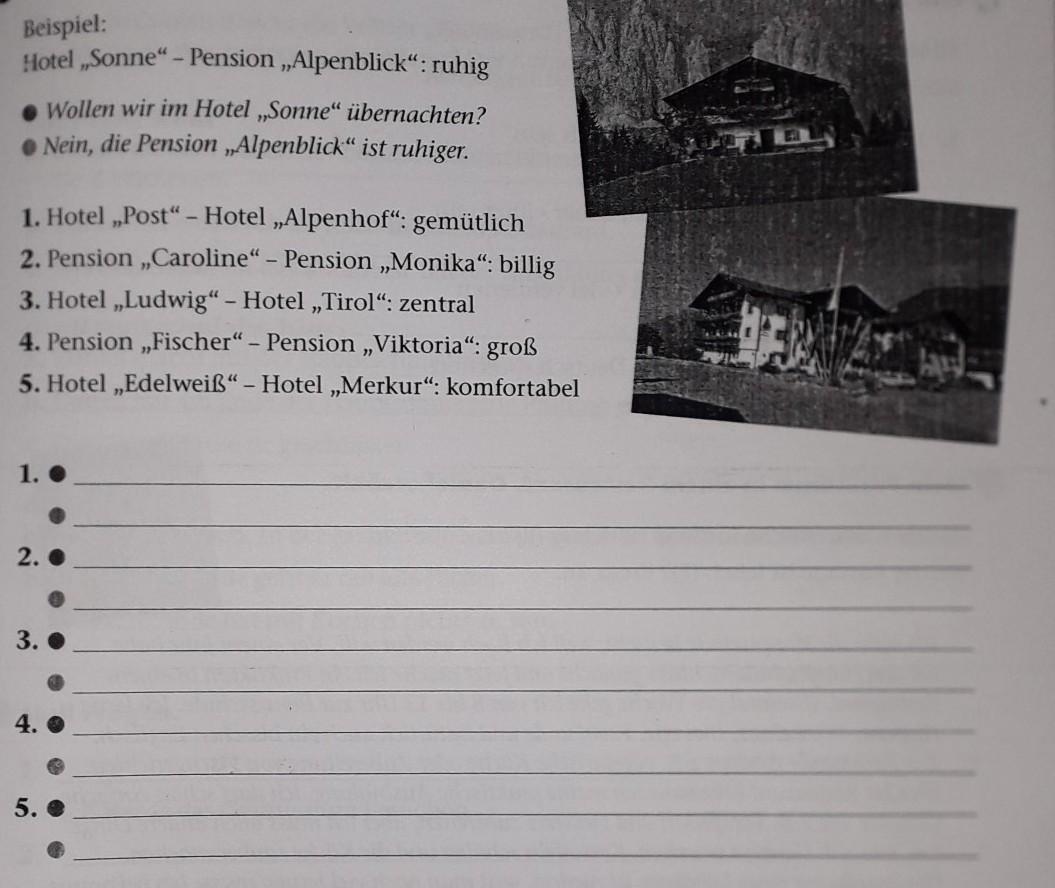 Beispiel:
Hotel „Sonne“ – Pension „Alpenblick“: ruhig
● Wollen wir im Hotel „Sonne“ übernachten?
● Nein, die Pension „Alpenblick“ ist ruhiger.
1. Hotel „Post“ – Hotel „Alpenhof“: gemütlich
2. Pension „Caroline“ – Pension „Monika“: billig
3. Hotel „Ludwig“ – Hotel „Tirol“: zentral
4. Pension „Fischer“ – Pension „Viktoria“: groß
5. Hotel „Edelweiß“ – Hotel „Merkur“: komfortabel
1. ●
●
2. ●
●
3. ●
●
4. ●
●
5. ●
●